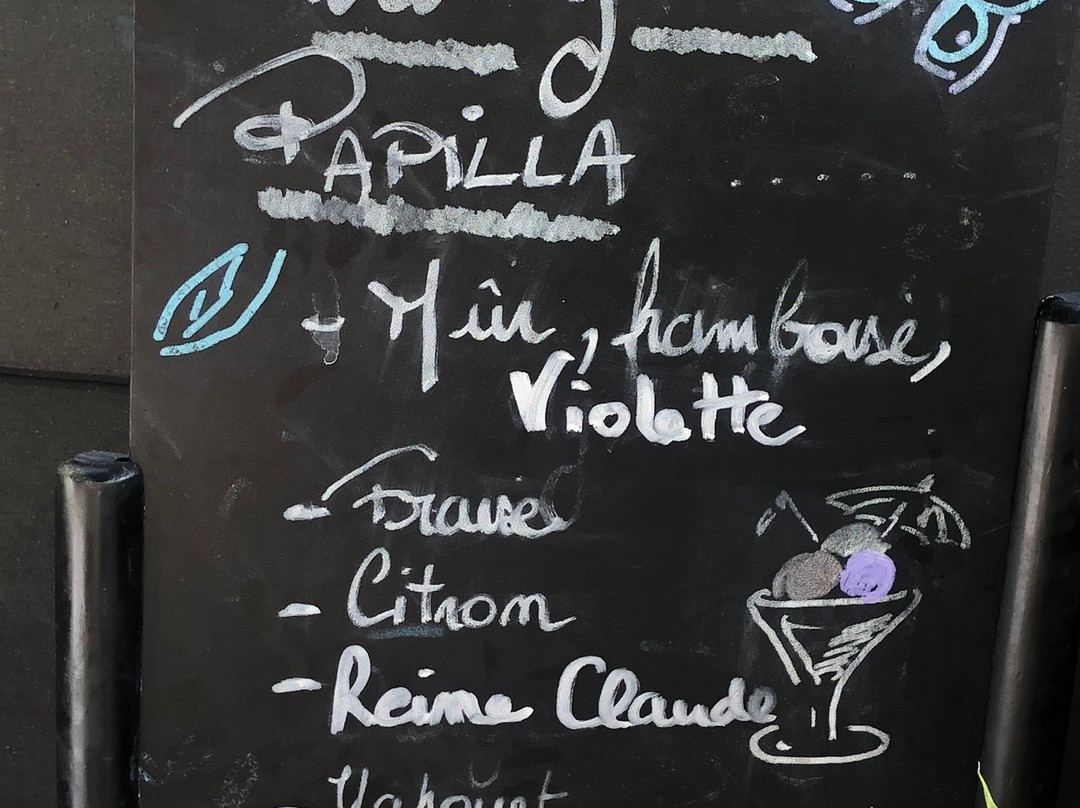 PAPILLA
- Mûr, framboise,
Violette
- Fraise
- Citron
- Reine Claude